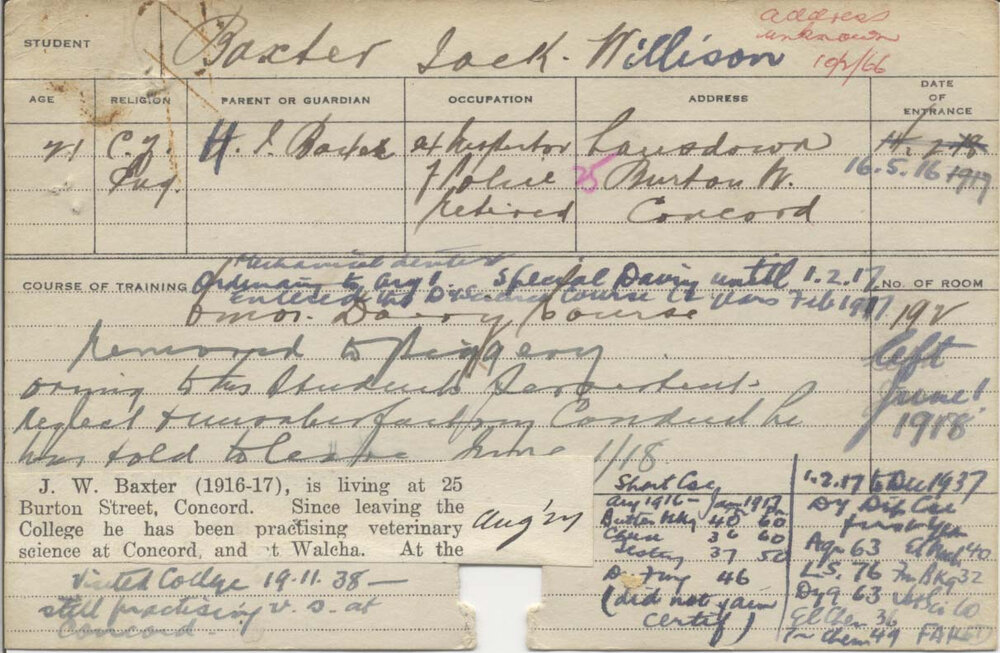 STUDENT Baxter Jack. Willison
address
unknown
10/2/66
AGE RELIGION PARENT OR GUARDIAN OCCUPATION ADDRESS DATE OF ENTRANCE
21 C. of H. J. Baxter ex Inspector Lansdown
Eng. of Police 25 Burton St. 16.5.16 1917
retired Concord
COURSE OF TRAINING Ordinary to Aug 1. Special Dairy until 1.2.17. No. OF ROOM
Entered Dairy Course 2 years Feb 1917
6 mos. Dairy Course 192
removed to Piggery left
owing to this Students persistent June 1
neglect & unsatisfactory Conduct he 1918
was told to leave June 1/18
J. W. Baxter (1916-17), is living at 25
Burton Street, Concord. Since leaving the
College he has been practising veterinary
science at Concord, and at Walcha. At the
Aug '27
visited College 19.11.38 —
still practising v. s. at
Concord.
Short Cse
Aug 1916 – Jan 1917
Butter Mkg 40 60
Cheese 36 60
Testing 37 50
46
(did not gain
certif)
1.2.17 to Dec 1937
Dy Dip Cse
first yr
Agr 63 40
L.S. 76 32
Dyg 63
El Chem 36
Chem 49 FAILED